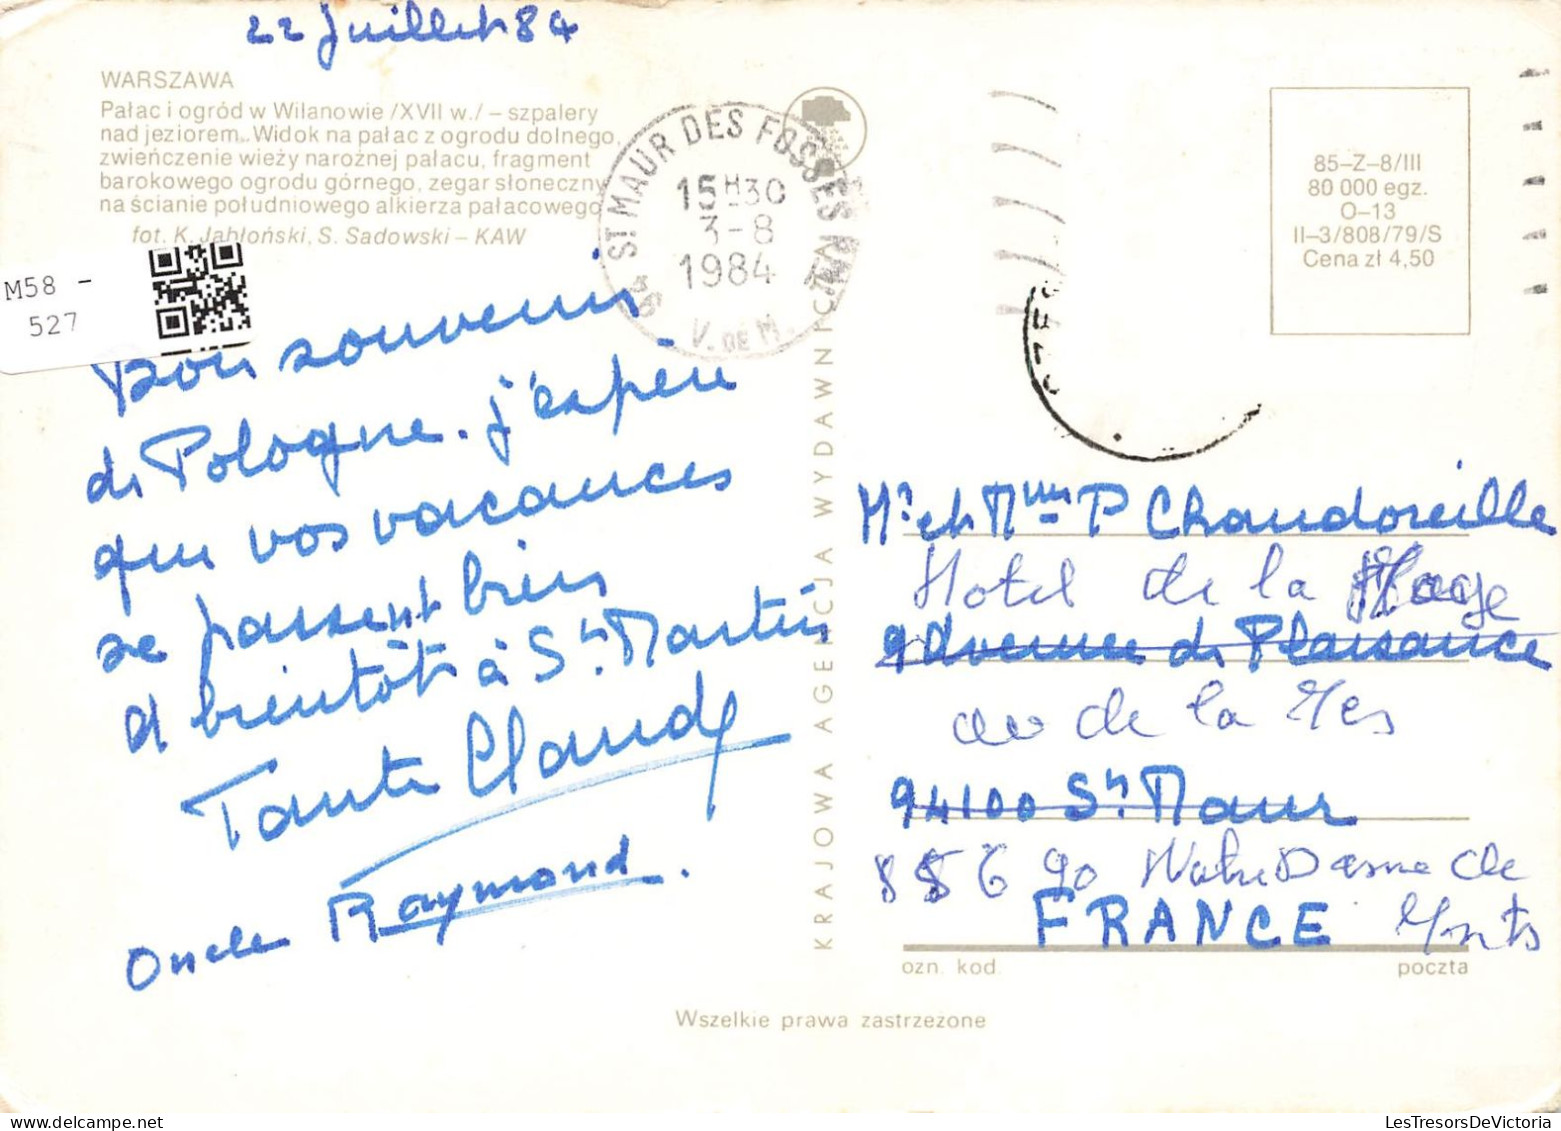 22 Juillet 84
WARSZAWA
Pałac i ogród w Wilanowie /XVII w./ – szpalery
nad jeziorem. Widok na pałac z ogrodu dolnego,
zwieńczenie wieży narożnej pałacu, fragment
barokowego ogrodu górnego, zegar słoneczny
na ścianie południowego alkierza pałacowego
fot. K. Jabłoński, S. Sadowski – KAW
M58 -
527
94 ST MAUR DES FOSSES PAL
15H30
3-8
1984
V. DE M.
Bon souvenir
de Pologne. j'espère
que vos vacances
se passent bien
à bientôt à St Martin
Tante Claude
Oncle Raymond.
KRAJOWA AGENCJA WYDAWNICZA
85–Z–8/III
80 000 egz.
O–13
II–3/808/79/S
Cena zł 4,50
Mr et Mme P Chaudoreille
Hotel de la Plage
9 Avenue de Plaisance
av de la Mer
94100 St Maur
85690 Notre Dame de
FRANCE Monts
ozn. kod. poczta
Wszelkie prawa zastrzeżone
LesTresorsDeVictoria